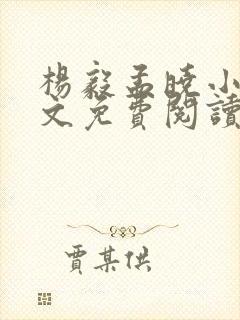 楊毅孟曉小
文免費閱讀
賈某供